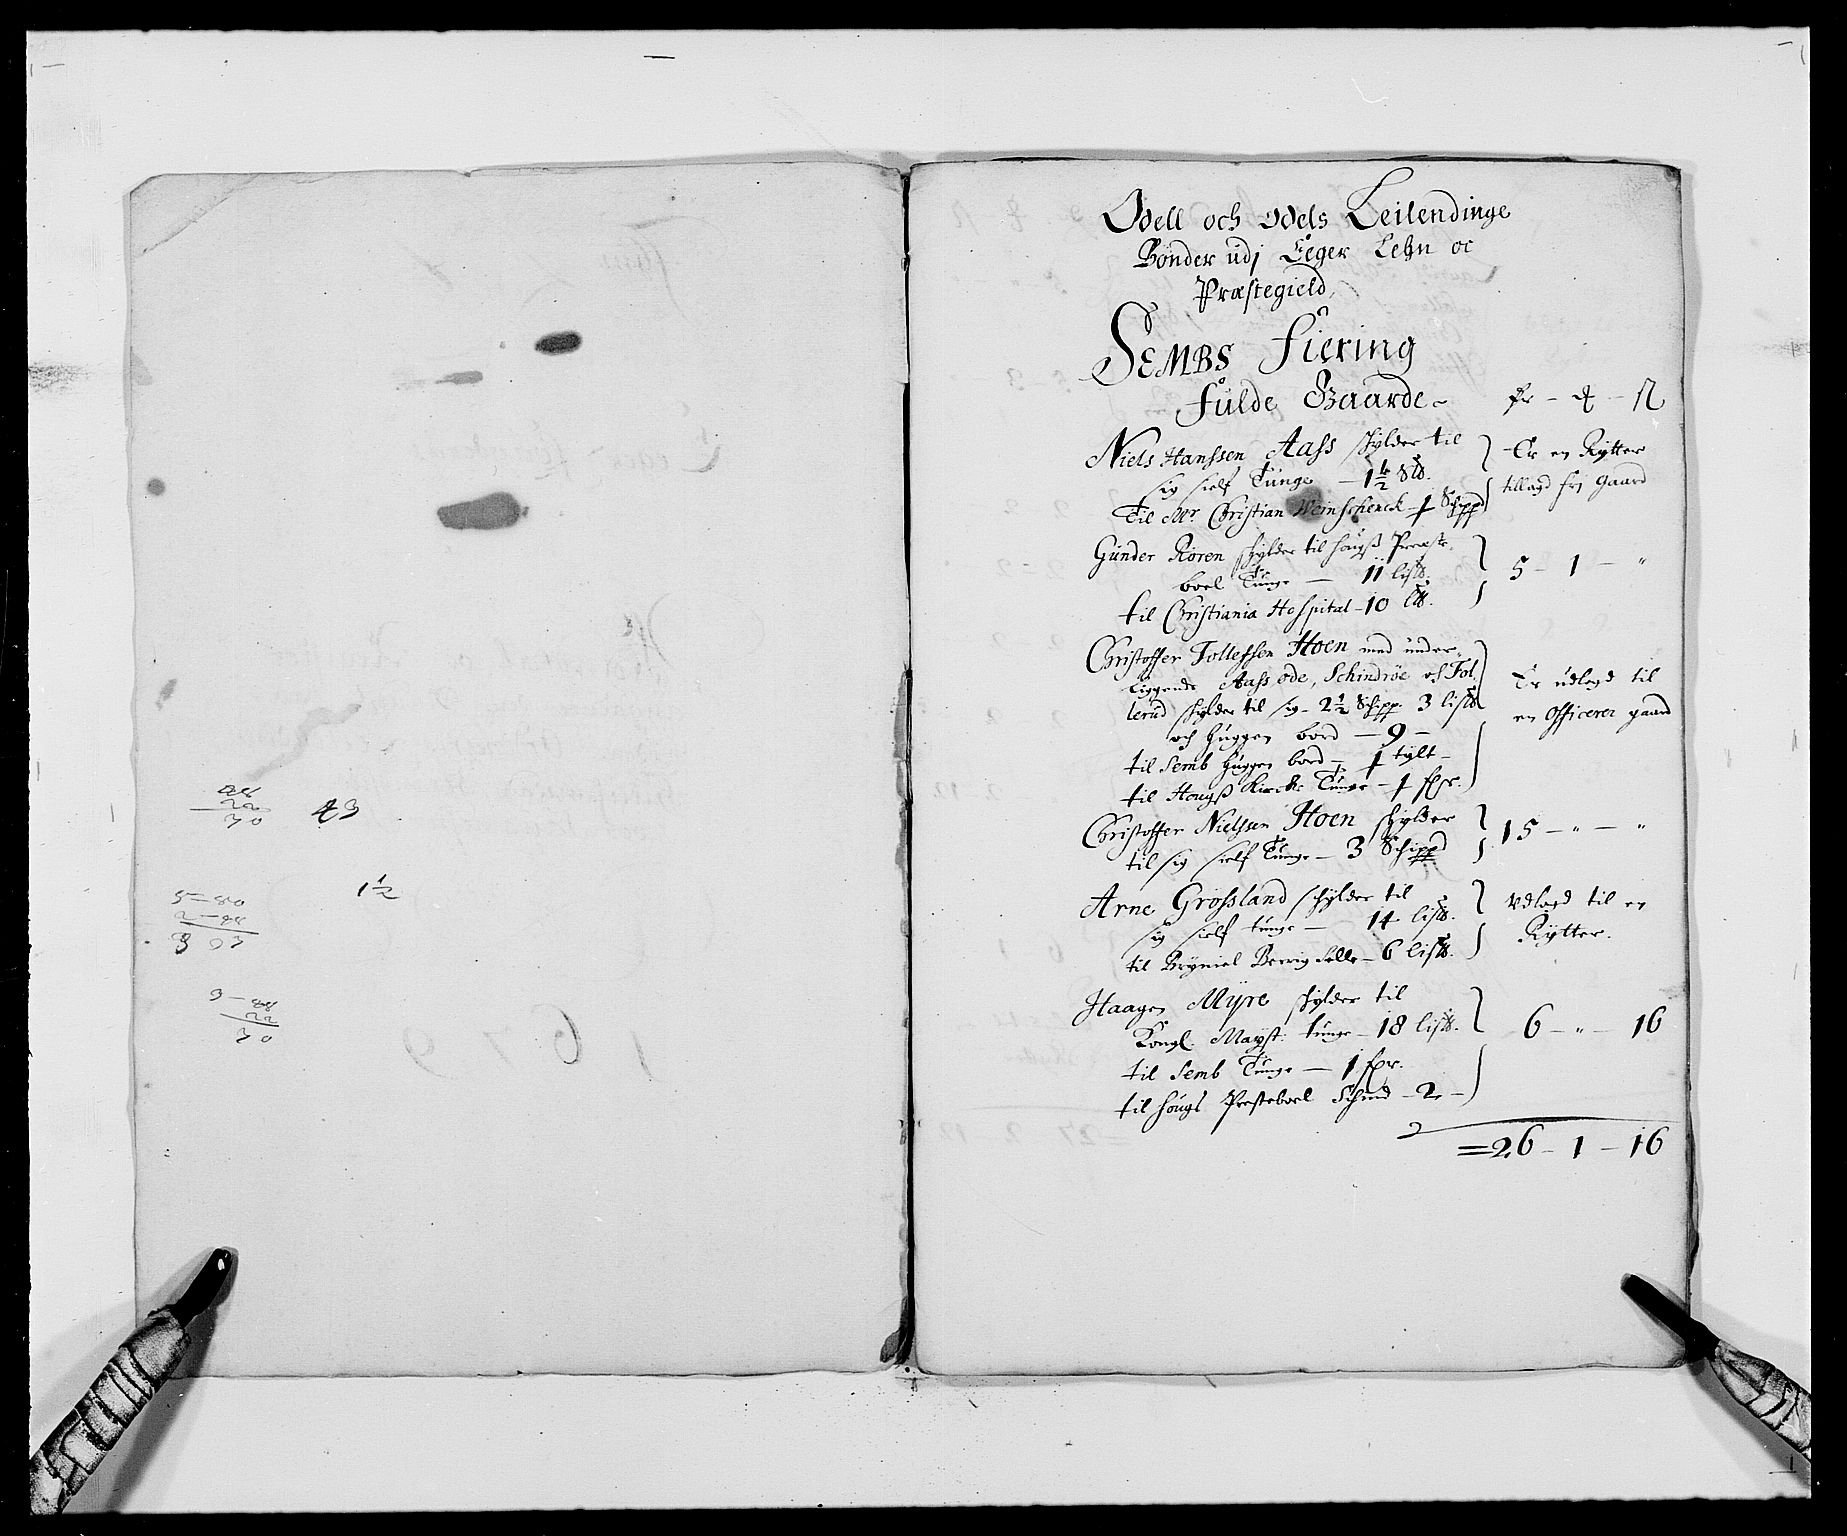 98
22
70
43
1½
5 – 80
2 – 98
3 07
9 – 98
22
70
Odell och odels Leilendinge
Bønder udj Eger Lehn oc
Præstegield,
SEMBS Fiering
Fulde Gaarde
Niels Hanssen Aass schylder til
sig sielf Tunge – 1½ Ød.
Til Mr. Christian Weinschenck – 1 Schippd
Er en Rytter
tillagd fri Gaard
Gunder Røren schylder til Hougs Præste-
boel Tunge – 11 lispd.
til Christiania Hospital – 10 lispd.
5 – 1 – "
Christoffer Tollefsen Hoen med under-
liggende Aass øde, Schindrøe och Tol-
lerud schylder til sig – 2½ Schipp. 3 lispd
och huggen bord – 9 –
til Semb huggen bord – 1 tylt –
til Hougs Kircke Tunge – 1 fpr.
Er udlagd til
en Officerer gaard
Christoffer Nielssen Hoen schylder
til sig sielf Tunge – 3 Schippd
15 – " – "
Arne Grossland schylder til
sig sielf tunge – 14 lispd.
til Bryniel Berrig Selle – 6 lispd.
Udlagd til en
Rytter.
Haagen Myre schylder til
Kongl. Mayst. tunge – 18 lispd.
til Semb Tunge – 1 fpr.
til Hougs Presteboel Schind – 2 –
6 – " – 16
=26 – 1 – 16